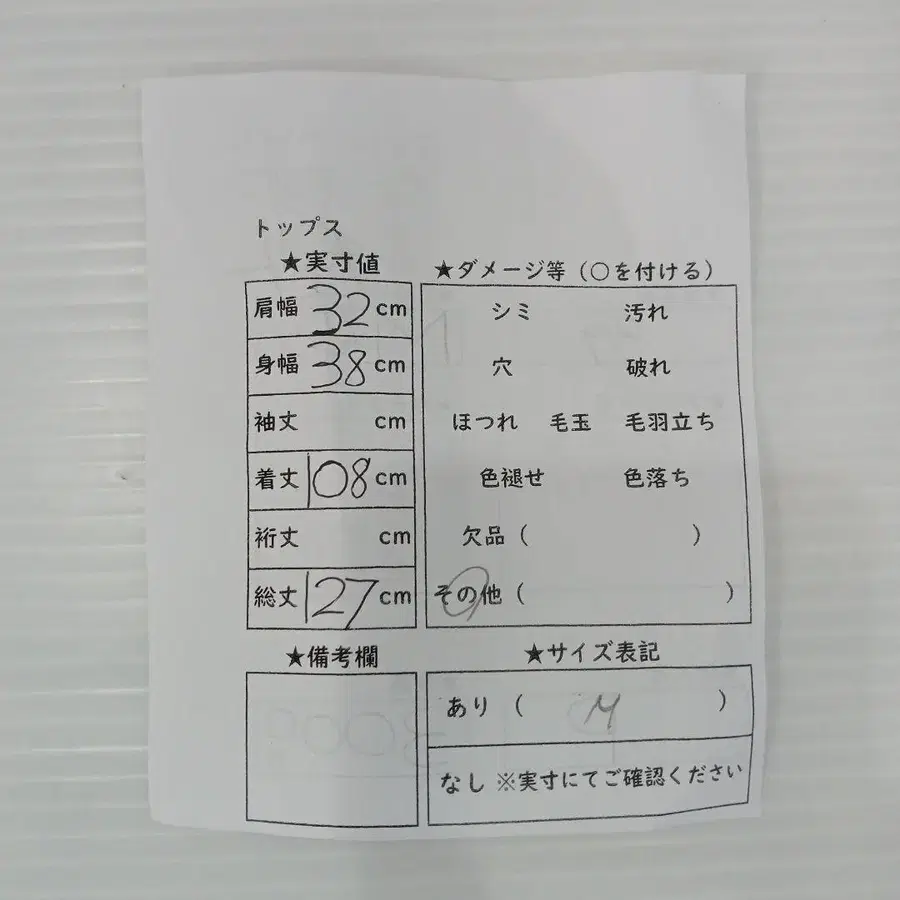 トップス
★実寸値
肩幅 32 cm
身幅 38 cm
袖丈 cm
着丈 108 cm
裄丈 cm
総丈 127 cm
★ダメージ等（○を付ける）
シミ 汚れ
穴 破れ
ほつれ 毛玉 毛羽立ち
色褪せ 色落ち
欠品（ ）
その他（ ）
★備考欄
★サイズ表記
あり（ M ）
なし ※実寸にてご確認ください